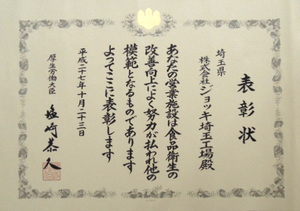 表彰状
埼玉県
株式会社ジョッキ埼玉工場殿
あなたの営業施設は食品衛生の
改善向上によく努力が払われ他の
模範となるものであります
よってここに表彰します
平成二十七年十月二十三日
厚生労働大臣
塩崎恭久